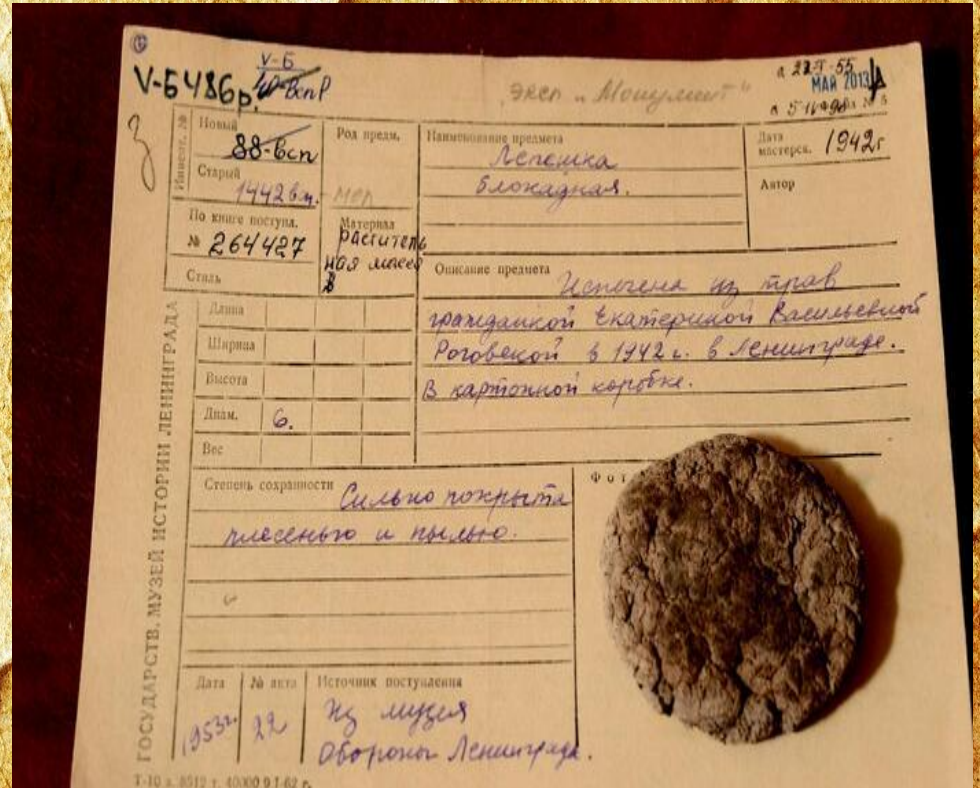 V-Б
V-Б 486р.
эксп „Монумент"
МАЙ 2013
Инвент. №
Новый
88-всп
Старый
1442 вп.
По книге поступл.
№ 264427
Стиль
Род предм.
Материал
раститель
ная масса
Наименование предмета
Лепешка
блокадная.
Дата
мастерск. 1942г
Автор
Описание предмета
Испечена из трав
гражданкой Екатериной Васильевной
Роговской в 1942 г. в Ленинграде.
В картонной коробке.
ГОСУДАРСТВ. МУЗЕЙ ИСТОРИИ ЛЕНИНГРАДА
Длина
Ширина
Высота
Диам. 6.
Вес
Степень сохранности Сильно покрыта
плесенью и пылью.
Фот
Дата
1953г.
№ акта
22
Источник поступления
Из музея
Обороны Ленинграда.
Т-10 з. 8512 т. 40000 9 I-62 г.